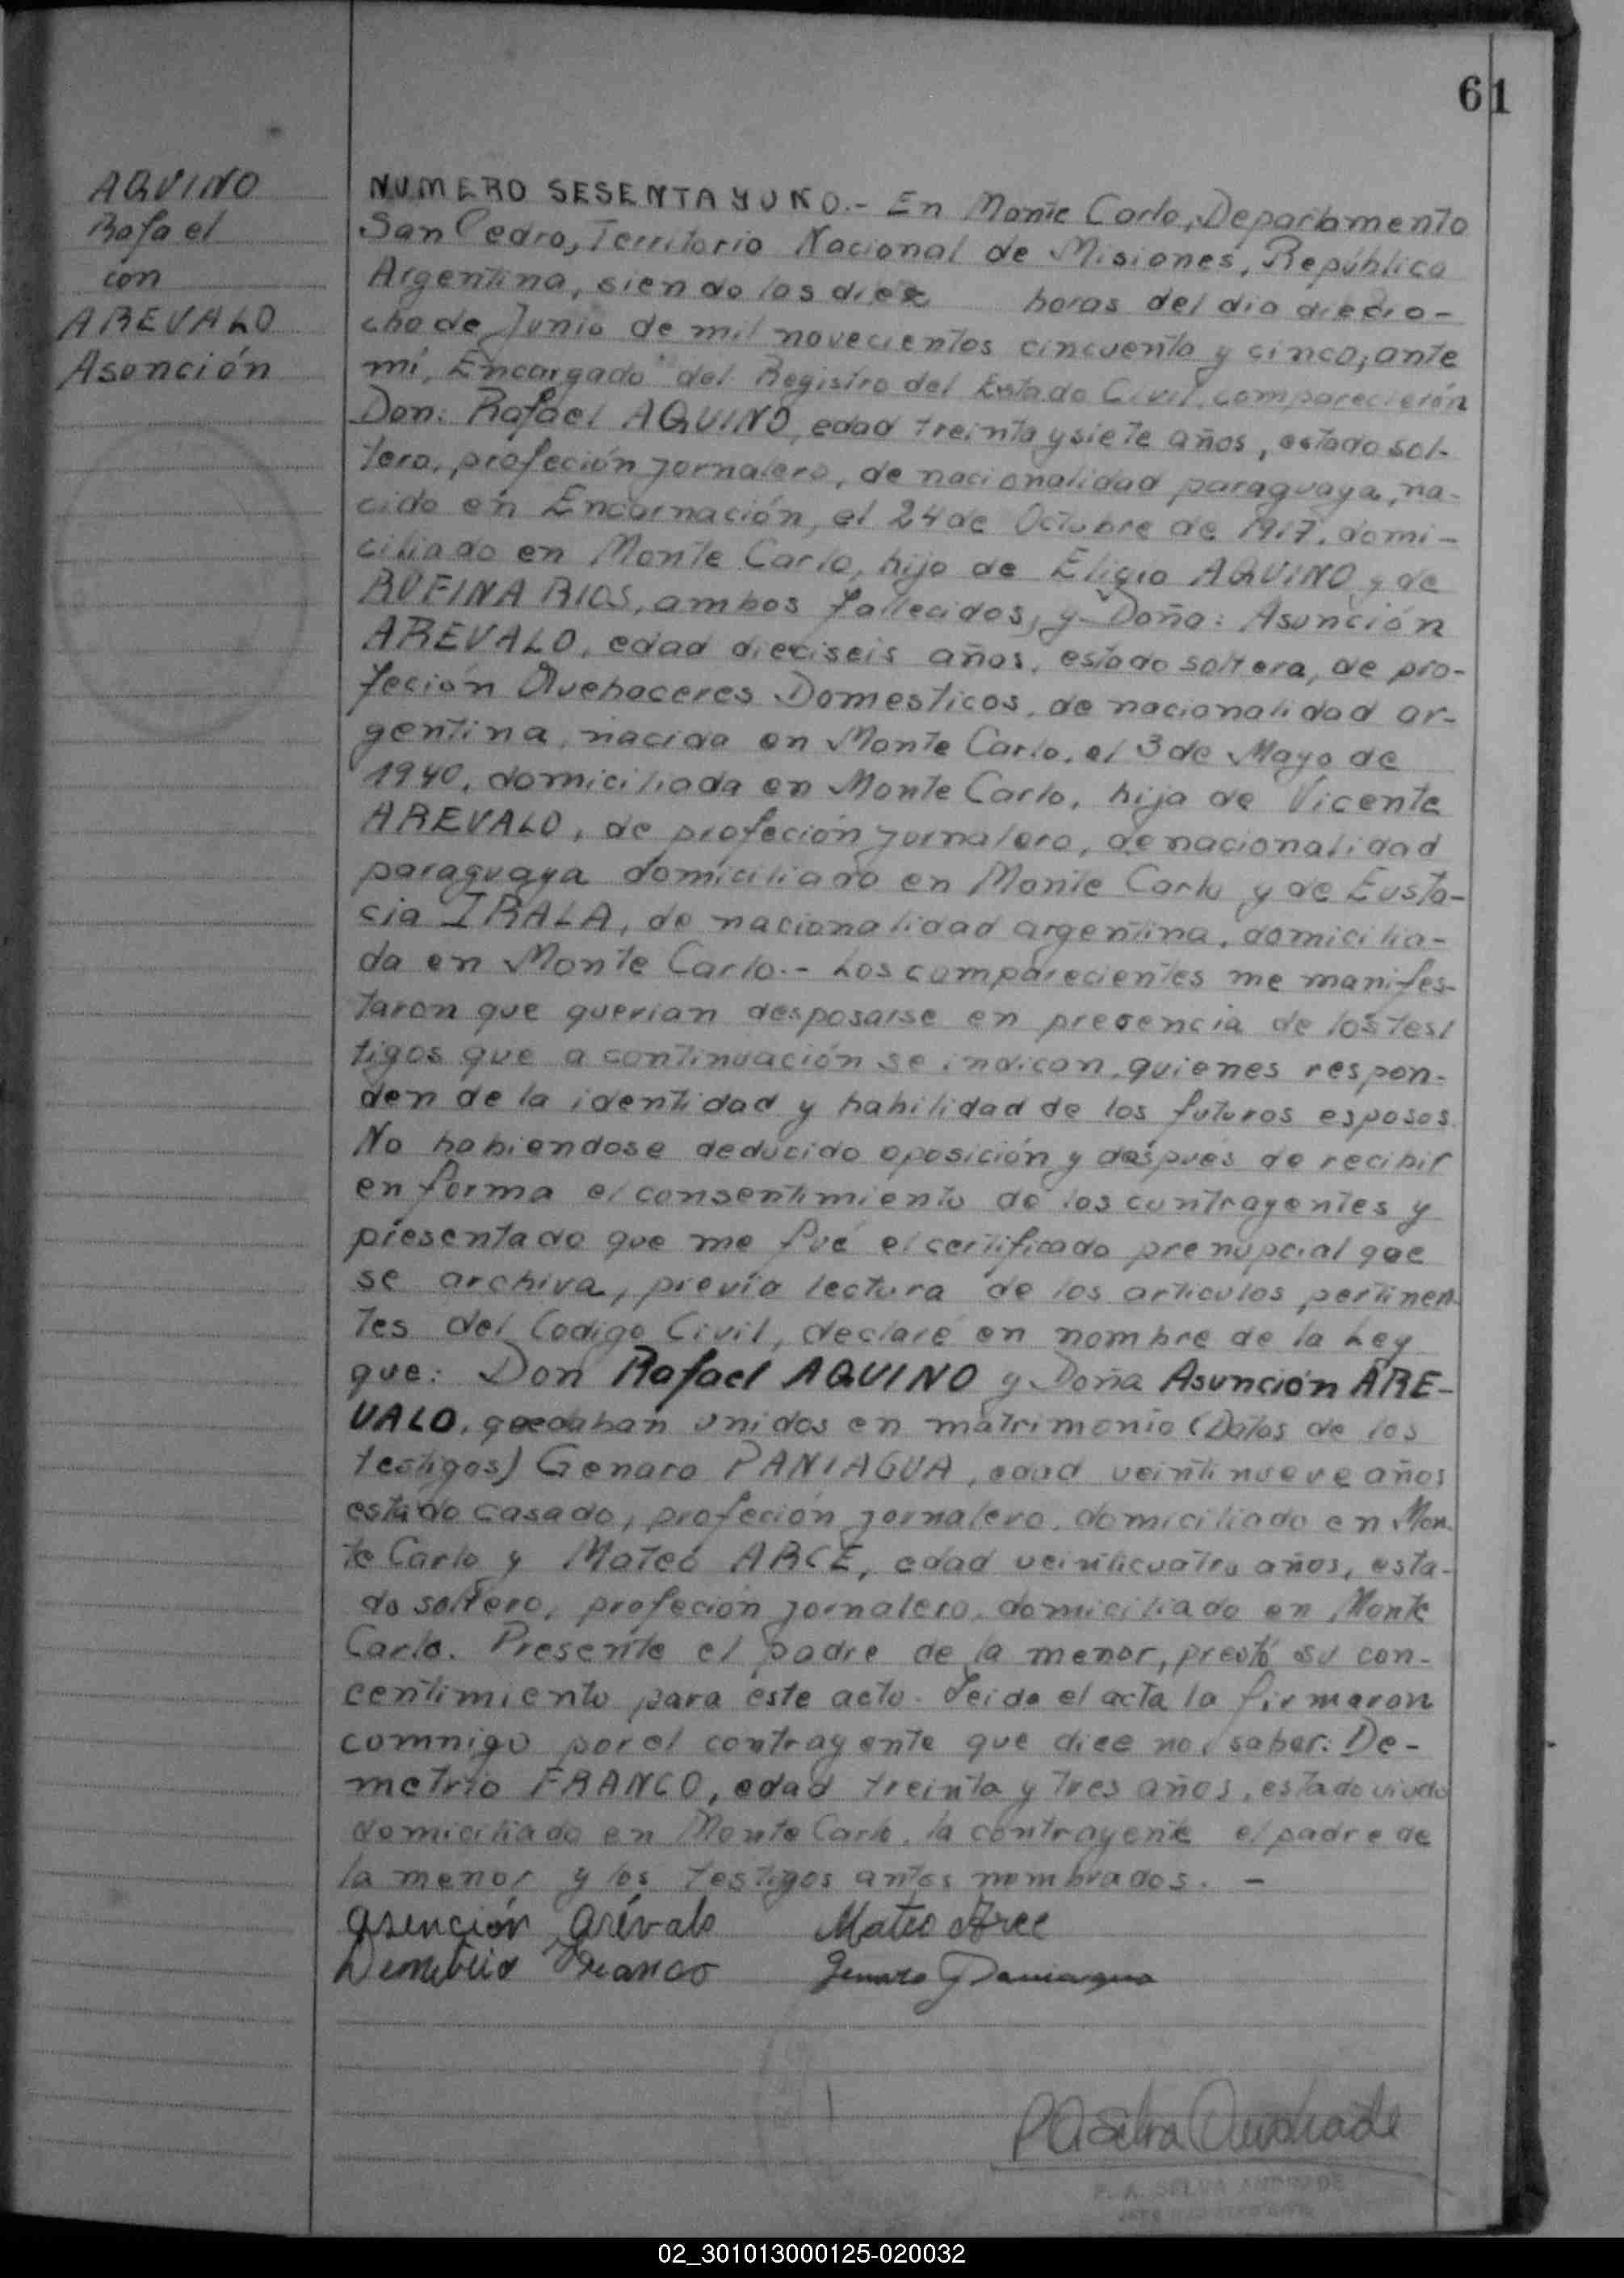 61
AQUINO
Rafael
con
AREVALO
Asención
NUMERO SESENTA Y UNO.- En Monte Carlo, Departamento
San Pedro, Territorio Nacional de Misiones, República
Argentina, siendo las diez horas del dia diecio-
cho de Junio de mil novecientos cincuenta y cinco, ante
mí, Encargado del Registro del Estado Civil, comparecierón
Don: Rafael AQUINO, edad treinta y siete años, estado sol-
tero, profeción jornalero, de nacionalidad paraguaya, na-
cido en Encarnación, el 24 de Octubre de 1917, domi-
ciliado en Monte Carlo, hijo de Eligio AQUINO y de
RUFINA RIOS, ambos fallecidos, y Doña: Asunción
AREVALO, edad dieciseis años, estado soltera, de pro-
feción Quehaceres Domesticos, de nacionalidad ar-
gentina, nacida en Monte Carlo, el 3 de Mayo de
1940, domiciliada en Monte Carlo, hija de Vicente
AREVALO, de profeción jornalero, de nacionalidad
paraguaya domiciliado en Monte Carlo y de Eusta-
cia IRALA, de nacionalidad argentina, domicilia-
da en Monte Carlo.- Los comparecientes me manifes-
taron que querian desposarse en presencia de los tes/
tigos que a continuación se indican, quienes respon-
den de la identidad y habilidad de los futuros esposos.
No habiendose deducido oposición y después de recibir
en forma el consentimiento de los contrayentes y
presentado que me fué el certificado prenupcial que
se archiva, previa lectura de los articulos pertinen-
tes del Codigo Civil, declaré en nombre de la Ley
que: Don Rafael AQUINO y Doña Asunción ARE-
VALO, quedaban unidos en matrimonio (Datos de los
testigos) Genaro PANIAGUA, edad veintinueve años
estado casado, profeción jornalero, domiciliado en Mon-
te Carlo y Mateo ARCE, edad veinticuatro años, esta-
do soltero, profeción jornalero, domiciliado en Monte
Carlo. Presente el padre de la menor, prestó su con-
centimiento para este acto. Leida el acta la firmaron
comnigo por el contrayente que dice no saber: De-
metrio FRANCO, edad treinta y tres años, estado viudo
domiciliado en Monte Carlo, la contrayente el padre de
la menor y los testigos antes nombrados. -
Asención Arévalo Mateo Arce
Demetrio Franco Genaro Paniagua
P A Selva Andrade
P. A. SELVA ANDRADE
02_301013000125-020032